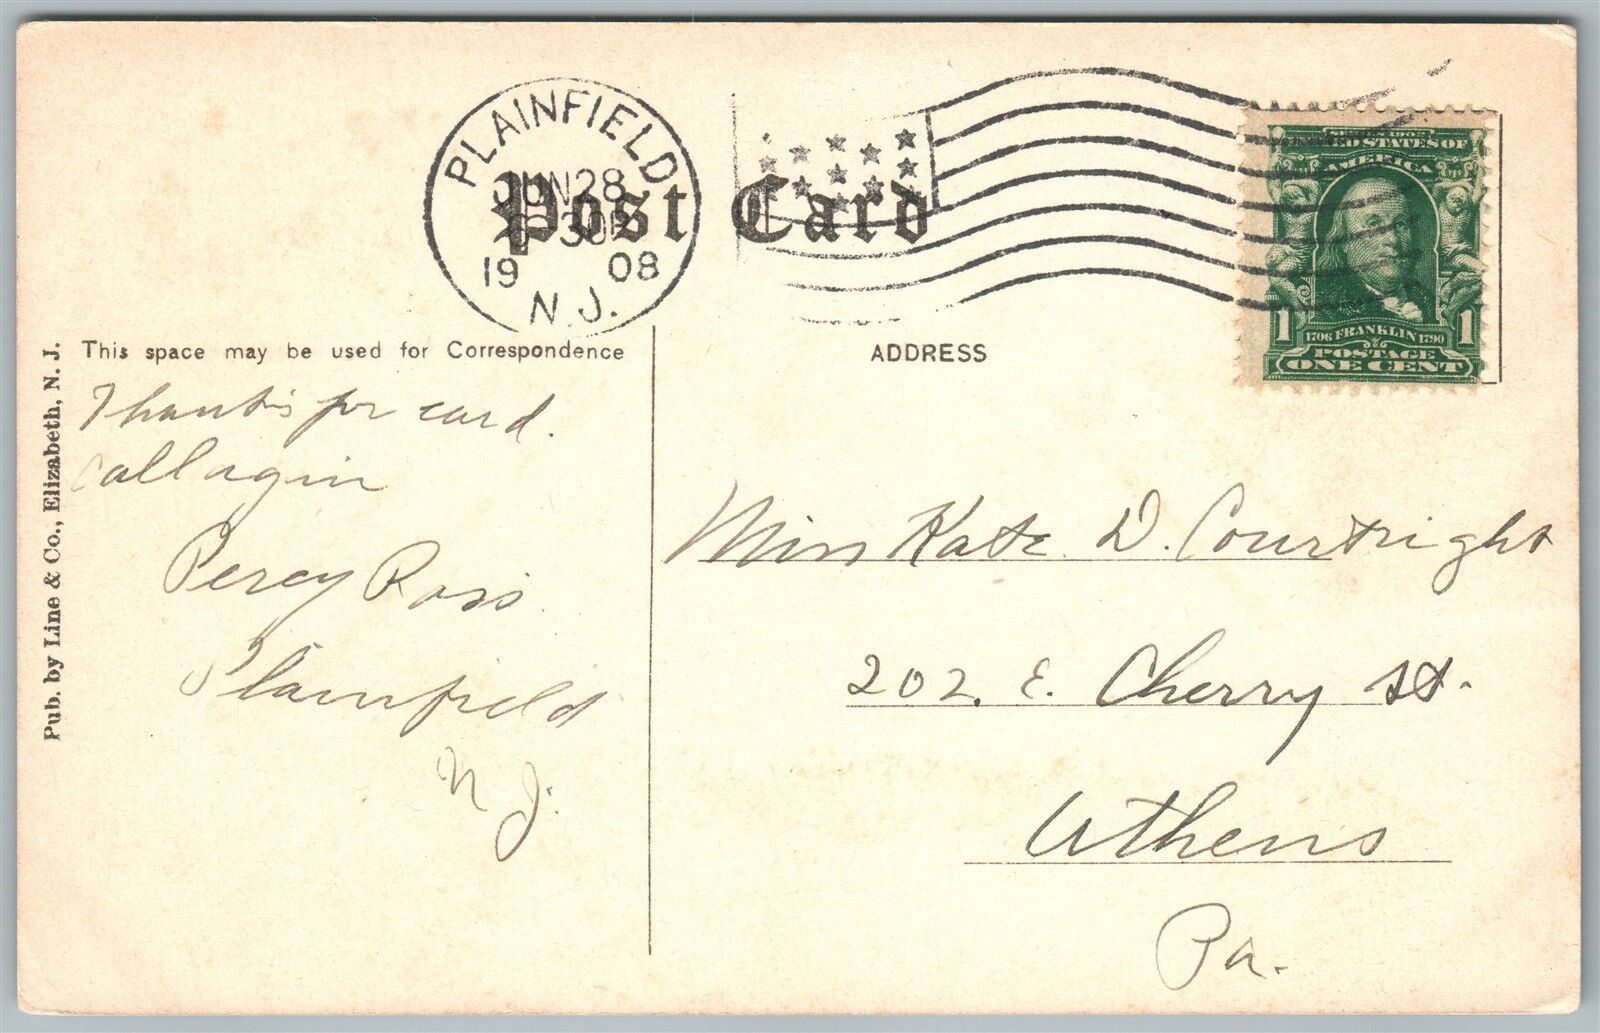 PLAINFIELD
JUN 28
30P
19 08
N.J.
Post Card
SERIES 1902
UNITED STATES OF
AMERICA
1 1
1706 FRANKLIN 1790
POSTAGE
ONE CENT
Pub. by Line & Co., Elizabeth, N. J.
This space may be used for Correspondence
Thanks for card.
Call again
Percy Ross
Plainfield
N J.
ADDRESS
Miss Kate D. Courtright
202. E. Cherry St.
Athens
Pa.